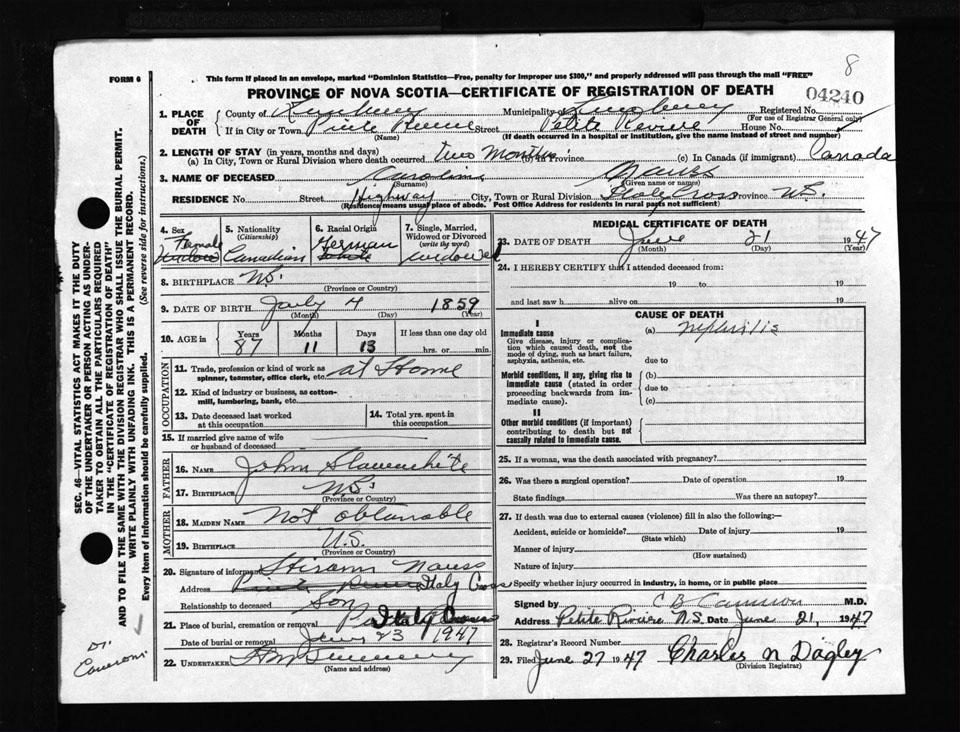 8
FORM 6
This form if placed in an envelope, marked "Dominion Statistics—Free, penalty for improper use $300," and properly addressed will pass through the mail "FREE"
PROVINCE OF NOVA SCOTIA—CERTIFICATE OF REGISTRATION OF DEATH
04240
1. PLACE OF DEATH
County of Municipality of Registered No.
(For use of Registrar General only)
If in City or Town Street Petite Riviere House No.
(Name) (If death occurred in a hospital or institution, give the name instead of street and number)
2. LENGTH OF STAY (in years, months and days)
(a) In City, Town or Rural Division where death occurred two Months (b) in Province (c) In Canada (if immigrant) Canada
3. NAME OF DECEASED Caroline Nauss
(Surname) (Given name or names)
RESIDENCE No. Street Highway City, Town or Rural Division Italy Cross Province N.S.
(Residence means usual place of abode. Post Office Address for residents in rural parts not sufficient)
4. Sex Female
5. Nationality (Citizenship) Canadian
6. Racial Origin German
7. Single, Married, Widowed or Divorced (write the word) widowed
8. BIRTHPLACE N.S.
(Province or Country)
9. DATE OF BIRTH July 4 1859
(Month) (Day) (Year)
10. AGE in Years Months Days If less than one day old
87 11 13 hrs. or min.
OCCUPATION
11. Trade, profession or kind of work as spinner, teamster, office clerk, etc. at Home
12. Kind of industry or business, as cotton-mill, lumbering, bank, etc.
13. Date deceased last worked at this occupation
14. Total yrs. spent in this occupation
15. If married give name of wife or husband of deceased
FATHER
16. NAME John Slauenwhite
17. BIRTHPLACE N.S.
(Province or Country)
MOTHER
18. MAIDEN NAME Not obtainable
19. BIRTHPLACE U.S.
(Province or Country)
20. Signature of informant Hiram Nauss
Address Italy Cross
Relationship to deceased Son
21. Place of burial, cremation or removal Italy Cross
Date of burial or removal June 23 1947
22. UNDERTAKER
(Name and address)
MEDICAL CERTIFICATE OF DEATH
23. DATE OF DEATH June 21 1947
(Month) (Day) (Year)
24. I HEREBY CERTIFY that I attended deceased from:
19 to 19
and last saw h alive on 19
CAUSE OF DEATH
I
Immediate cause (a) Nephritis
Give disease, injury or complication which caused death, not the mode of dying, such as heart failure, asphyxia, asthenia, etc.
due to
Morbid conditions, if any, giving rise to immediate cause (stated in order proceeding backwards from immediate cause).
(b)
due to
(c)
II
Other morbid conditions (if important) contributing to death but not causally related to immediate cause.
25. If a woman, was the death associated with pregnancy?
26. Was there a surgical operation? Date of operation 19
State findings Was there an autopsy?
27. If death was due to external causes (violence) fill in also the following:—
Accident, suicide or homicide? Date of injury 19
(State which)
Manner of injury
(How sustained)
Nature of injury
Specify whether injury occurred in industry, in home, or in public place
Signed by C B Cameron M.D.
Address Petite Riviere N.S. Date June 21, 1947
28. Registrar's Record Number
29. Filed June 27 1947 Charles N Dagley
(Division Registrar)
SEC. 46—VITAL STATISTICS ACT MAKES IT THE DUTY
OF THE UNDERTAKER OR PERSON ACTING AS UNDER-
TAKER TO OBTAIN ALL THE PARTICULARS REQUIRED
IN THE "CERTIFICATE OF REGISTRATION OF DEATH"
AND TO FILE THE SAME WITH THE DIVISION REGISTRAR WHO SHALL ISSUE THE BURIAL PERMIT.
WRITE PLAINLY WITH UNFADING INK. THIS IS A PERMANENT RECORD.
Every item of information should be carefully supplied. (See reverse side for instructions.)
Dr.
Cameron